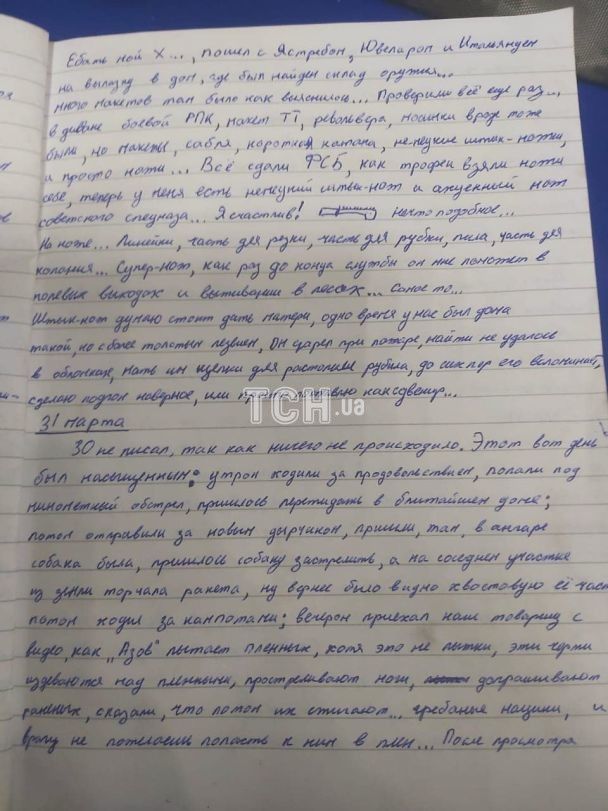 Ебать ной х..., пошел с Ястребом, Ювелиром и Итальянцем
на вылазку в дом, где был найден склад оружия...
много пакетов там было как выяснилось... Проверили всё еще раз...
в диване боевой РПК, макет ТТ, револьвера, мосинки вроде тоже
были, но макеты, сабля, короткая катана, немецкие штык-ножи,
и просто ножи... Всё сдали ФСБ, как трофеи взяли ножи
себе, теперь у меня есть немецкий штык-нож и ахуенный нож
советского спецназа... Я счастлив! нечто подобное...
На ноже... Линейки, часть для резки, часть для рубки, пила, часть для
копания... Супер-нож, как раз до конца службы он мне поможет в
полевых выходах и выживании в лесах... Самое то...
Штык-нож думаю стоит дать матери, одно время у нас был дома
такой, но с более толстым лезвием, он сгорел при пожаре, найти не удалось
в обломках, мать им щепки для растопки рубила, до сих пор его вспоминает,
сделаю подгон наверное, или просто как сувенир...
ТСН.ua
31 марта
30 не писал, так как ничего не происходило. Этот вот день
был насыщенным: утром ходили за продовольствием, попали под
минометный обстрел, пришлось переждать в ближайшем доме;
потом отправили за новым дырчиком, пришли, там, в ангаре
собака была, пришлось собаку застрелить, а на соседнем участке
из земли торчала ракета, ну вернее было видно хвостовую её часть
потом ходил за компотами; вечером приехал наш товарищ с
видео, как "Азов" пытает пленных, хотя это не пытки, эти черти
издеваются над пленными, простреливают ноги, допрашивают
раненых, сказали, что потом их сжигают... гребаные нацики, и
врагу не пожелаешь попасть к ним в плен... После просмотра